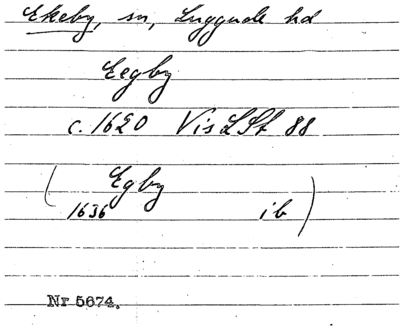 Ekeby, sn, Luggude hd
Eegby
c. 1620 Vis LSt 88
(Egby
1636 ib)
Nr 5674.